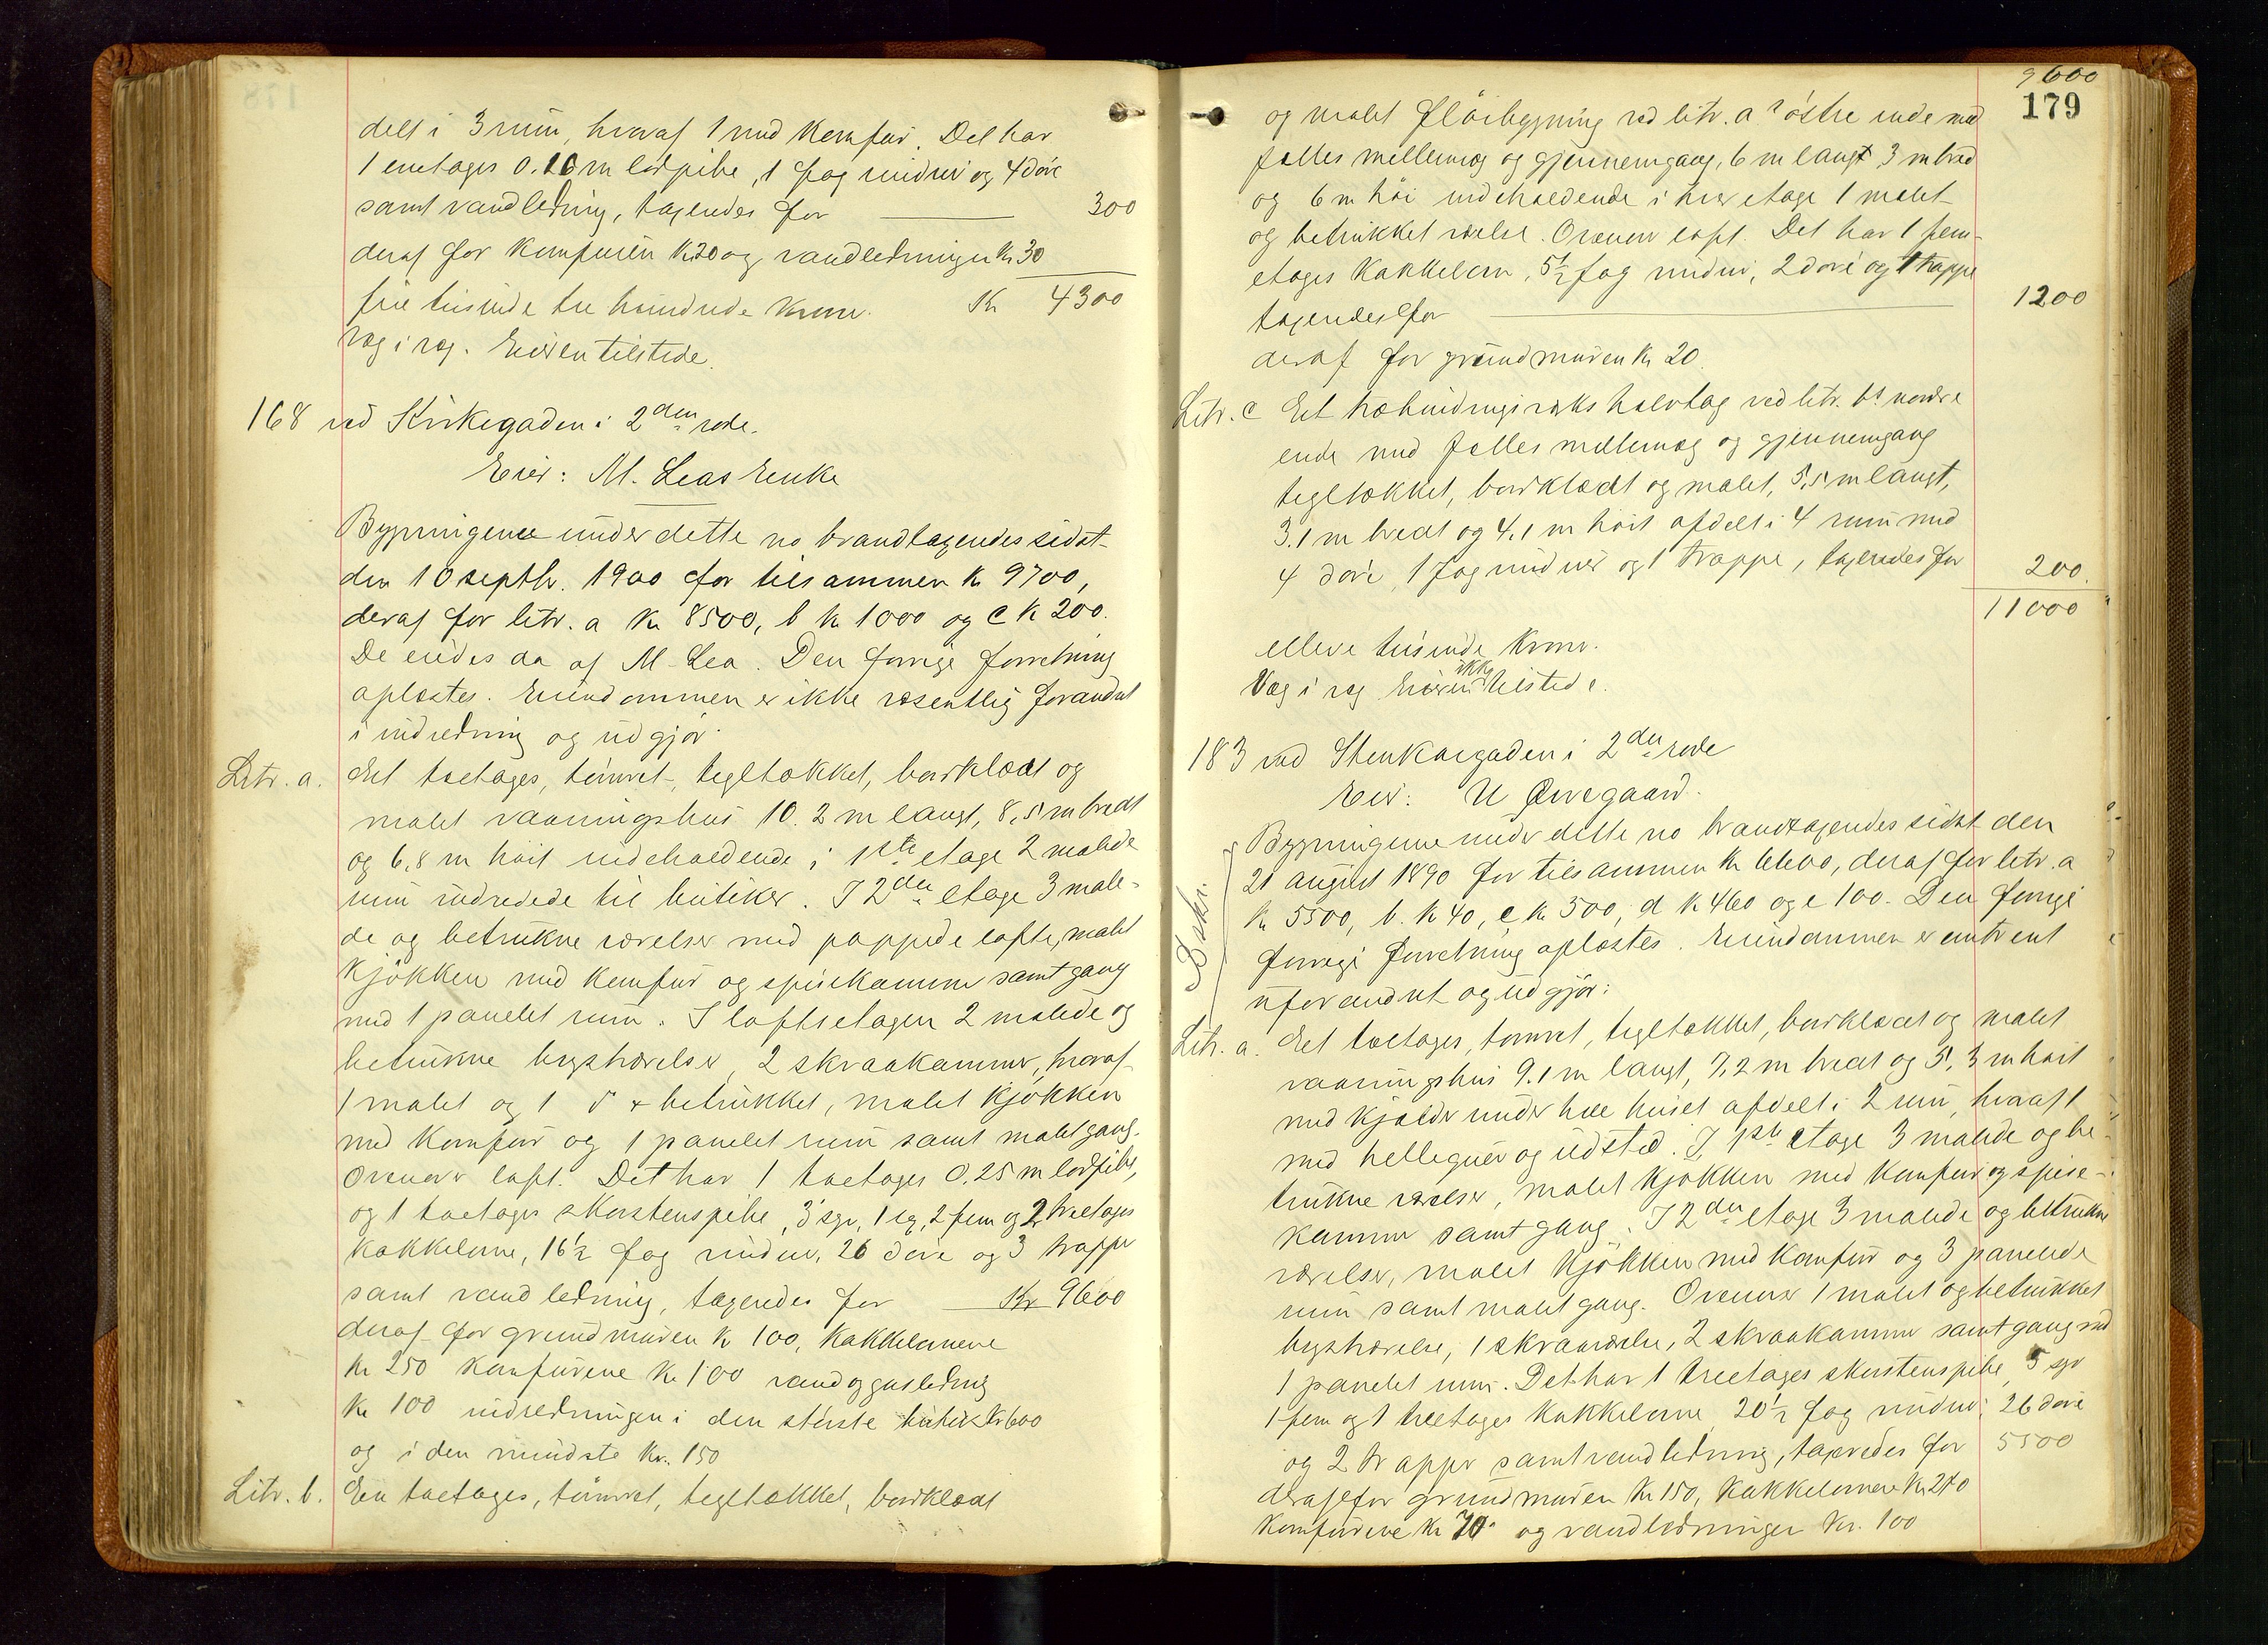 delt i 3 rum, hvoraf 1 med Komfur. Det har
1 enetages 0.16 m lodpibe, 1 fag vinduer og 4 döre
samt vandledning, taxeredes for 300
deraf for Komfuren K 20 og vandledningen Kr 30
fire tusinde tre hundrede Kroner. Kr 4300
Væg i væg. Eieren tilstede.
168 ved Kirkegaden i 2den rode.
Eier: M. Leas Enke
Bygningerne under dette no brandtaxeredes sidst
den 10 septbr. 1900 for tilsammen K 9700,
deraf for litr. a Kr 8500, b Kr 1000 og c K 200.
De eiedes da af M. Lea. Den forrige forretning
oplæstes. Eiendommen er ikke væsentlig forandret
i indredning og udgjör:
Litr. a. Et toetages, tömret, tegltækket, bordklædt og
malet vaaningshus 10.2 m langt, 8,5 m bredt
og 6,8 m höit indeholdende i 1ste etage 2 malede
rum indredede til butiker. I 2den etage 3 male-
de og betrukne værelser med pappede lofte, malet
Kjökken med Komfur og spisekammer samt gang
med 1 panelet rum. I loftsetagen 2 malede og
betrukne kvistværelser, 2 skraakammer, hvoraf
1 malet og 1 betrukket, malet Kjökken
med Komfur og 1 panelet rum samt malet gang.
Ovenover loft. Det har 1 toetages 0,25 m lodpibe,
og 1 toetages skorstenspibe, 3 syv, 1 sex, 2 fem og 2 treetages
Kakkelovne, 16½ fag vinduer, 26 döre og 3 trapper
samt vandledning, taxeredes for Kr 9600
deraf for grundmuren K 100, Kakkelovnene
Kr 250 Komfurene Kr 100 vand og gasledning
Kr 100 indredningen i den störste butik Kr 600
og i den mindste Kr. 150
Litr. b. En toetages, tömret, tegltækket, bordklædt
9600
179
og malet flöibygning ved litr. a's östre ende med
fælles mellemvæg og gjennemgang, 6 m langt 3 m bred
og 6 m höi indeholdende i hver etage 1 malet
og betrukket værelse. Ovenover loft. Det har 1 fem-
etages Kakkelovn, 5½ fag vinduer, 2 döre og 1 trappe
taxeredes for 1200
deraf for grundmuren Kr 20.
Litr. c Et træbindingsværks halvtag ved litr. b's nordre
ende med fælles mellemvæg og gjennemgang
tegltækket, bordklædt og malet, 5,5 m langt,
3.1 m bredt og 4.1 m höit afdelt i 4 rum med
4 döre, 1 fag vinduer og 1 trappe, taxeredes for 200.
11000
elleve tusinde Kroner.
Væg i væg Eieren ikke tilstede.
183 ved Stenkargaden i 2den rode
Eier: U Qvegaard.
Bygningerne under dette no brandtaxeredes sidst den
21 august 1890 for tilsammen Kr 6600, deraf for litr. a
Kr 5500, b. K 40, c Kr 500, d K 460 og e 100. Den forrige
forrige forretning oplæstes. Eiendommen er omtrent
uforandret og udgjör:
Litr. a. Et toetages, tömret, tegltækket, bordklædt og malet
vaaningshus 9.1 m langt, 7,2 m bredt og 5,3 m höit
med Kjælder under hele huset afdelt i 2 rum, hvoraf 1
med hellegulv og ildsted. I 1ste etage 3 malede og be-
trukne værelser, malet Kjökken med Komfur og spise-
kammer samt gang. I 2den etage 3 malede og betrukne
værelser, malet Kjökken med Komfur og 3 panelede
rum samt malet gang. Ovenover 1 malet og betrukket
kvistværelse, 1 skraaværelse, 2 skraakammer samt gang med
1 panelet rum. Det har 1 treetages skorstenspibe, 5 syv
1 fem og 1 treetages Kakkelovne 20½ fag vinduer, 26 döre
og 2 trapper samt vandledning, taxeredes for 5500
deraf for grundmuren Kr 150, Kakkelovnene Kr 270
Komfurene Kr 70 og vandledningen Kr. 100